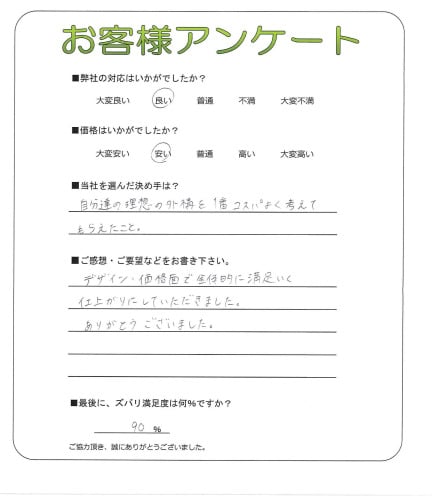 お客様アンケート
■弊社の対応はいかがでしたか？
大変良い 良い 普通 不満 大変不満
■価格はいかがでしたか？
大変安い 安い 普通 高い 大変高い
■当社を選んだ決め手は？
自分達の理想の外構を1番コスパよく考えて
もらえたこと。
■ご感想・ご要望などをお書き下さい。
デザイン・価格面で全体的に満足いく
仕上がりにしていただきました。
ありがとうございました。
■最後に、ズバリ満足度は何％ですか？
90 ％
ご協力頂き、誠にありがとうございました。